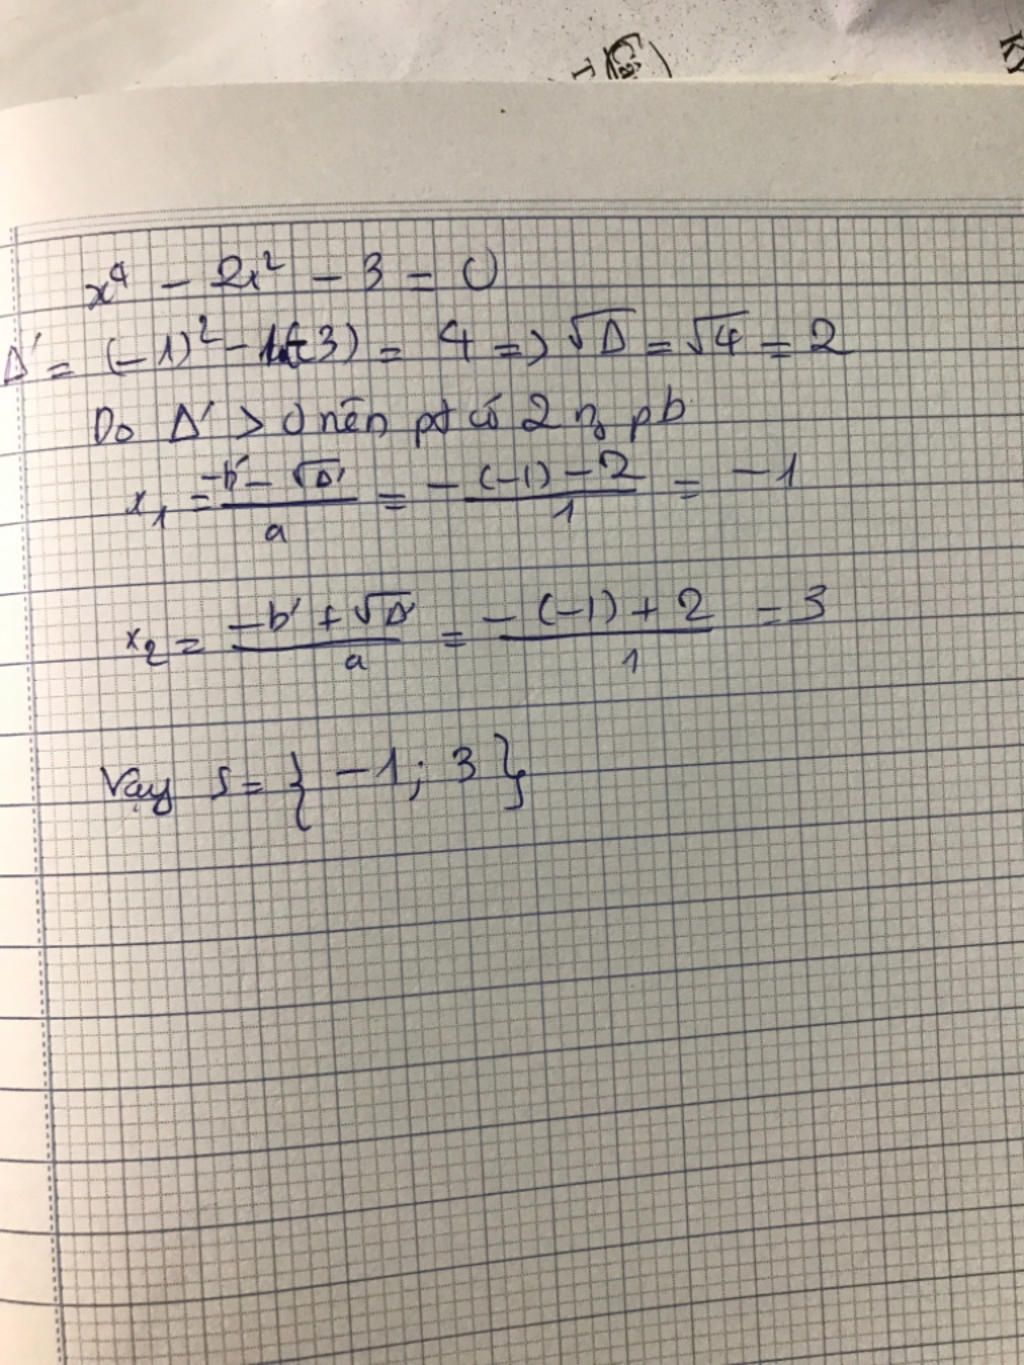 Câ
T
KY
x⁴ - 2x² - 3 = 0
Δ' = (-1)² - 1(-3) = 4 => √Δ = √4 = 2
Do Δ' > 0 nên pt có 2 n₀ pb
x₁ = (-b' - √Δ')/a = (-(-1) - 2)/1 = -1
x₂ = (-b' + √Δ')/a = (-(-1) + 2)/1 = 3
Vậy S = { -1; 3 }